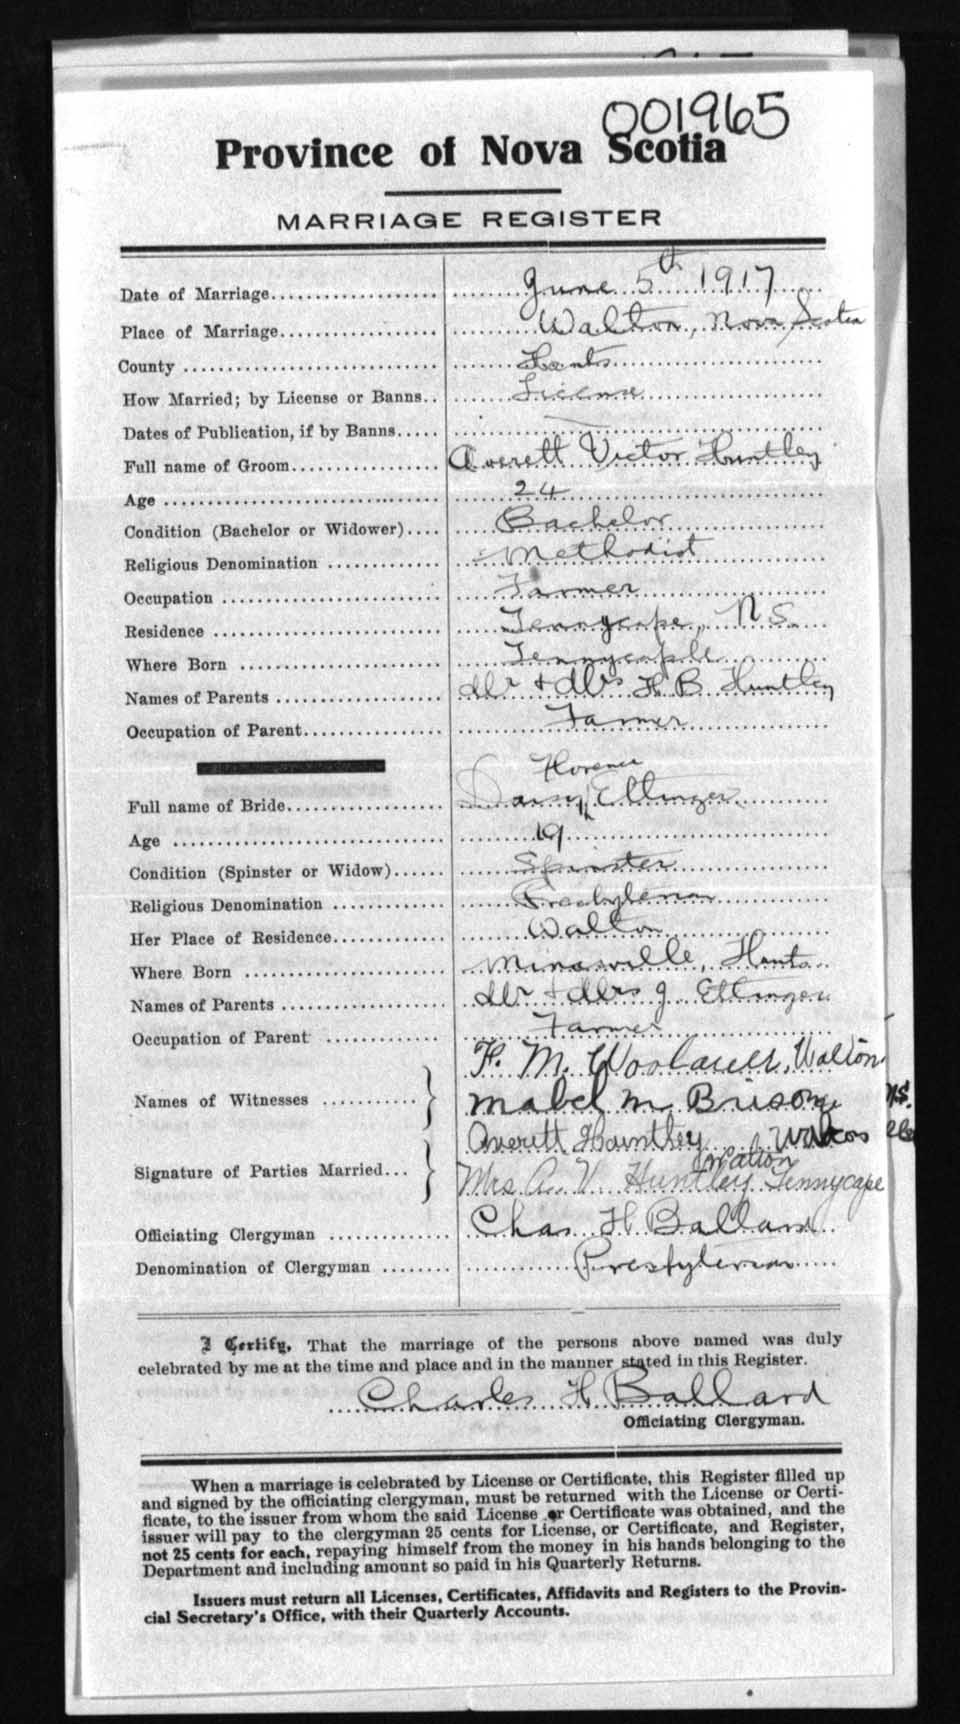 001965
Province of Nova Scotia
MARRIAGE REGISTER
Date of Marriage.................. June 5th 1917
Place of Marriage................. Walton, Nova Scotia
County ............................ Hants
How Married; by License or Banns.. License
Dates of Publication, if by Banns.....
Full name of Groom................ Averett Victor Huntley
Age ............................... 24
Condition (Bachelor or Widower).... Bachelor
Religious Denomination ............ Methodist
Occupation ........................ Farmer
Residence ......................... Tennycape, N.S.
Where Born ........................ Tennycaple
Names of Parents .................. Mr + Mrs H B Huntley
Occupation of Parent............... Farmer
Florence
Full name of Bride................. Daisy Ettinger
Age ............................... 19
Condition (Spinster or Widow)...... Spinster
Religious Denomination ............ Presbyterian
Her Place of Residence............. Walton
Where Born ........................ Minasville, Hants
Names of Parents .................. Mr + Mrs J Ettinger
Occupation of Parent .............. Farmer
F. M. Woolaver, Walton
Names of Witnesses ........... } Mabel M. Brison N.S.
Averett Huntley
Signature of Parties Married... } Mrs A. V. Huntley Tennycape
Officiating Clergyman ............. Chas H Ballard
Denomination of Clergyman ........ Presbyterian
I Certify, That the marriage of the persons above named was duly
celebrated by me at the time and place and in the manner stated in this Register.
Charles H Ballard
Officiating Clergyman.
When a marriage is celebrated by License or Certificate, this Register filled up
and signed by the officiating clergyman, must be returned with the License or Certi-
ficate, to the issuer from whom the said License or Certificate was obtained, and the
issuer will pay to the clergyman 25 cents for License, or Certificate, and Register,
not 25 cents for each, repaying himself from the money in his hands belonging to the
Department and including amount so paid in his Quarterly Returns.
Issuers must return all Licenses, Certificates, Affidavits and Registers to the Provin-
cial Secretary's Office, with their Quarterly Accounts.